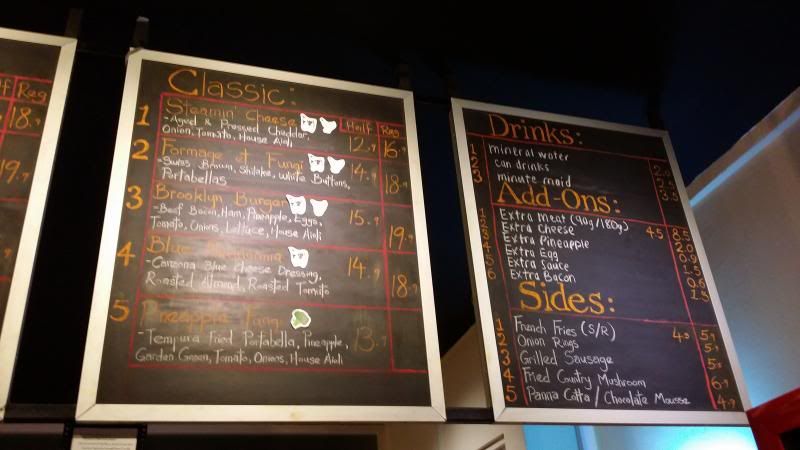 Reg
18.
19.
Classic:
Half Reg
1 Steamin' Cheese
-Aged & Pressed Cheddar,
Onion, Tomato, House Aioli
12.9 16.9
2 Formage et Fungi
-Swiss Brown, Shitake, White Buttons,
Portabellas
14.9 18.9
3 Brooklyn Burger
-Beef Bacon, Ham, Pineapple, Eggs,
Tomato, Onions, Lettuce, House Aioli
15.9 19.9
4 Blue
Blue Cheese Dressing,
Roasted Almond, Roasted Tomato
14.9 18.9
5 Pineapple Fung
-Tempura Fried Portabella, Pineapple,
Garden Green, Tomato, Onions, House Aioli
13.9
Drinks:
1 mineral water
2 can drinks
3 minute maid
Add-Ons:
Extra Meat (90g/180g) 45 85
Extra Cheese 2.0
Extra Pineapple 0.9
Extra Egg 1.5
Extra Sauce 0.6
6 Extra Bacon 1.5
Sides:
1 French Fries (S/R)
2 Onion Rings
3 Grilled Sausage
4 Fried Country Mushroom 6.9
5 Panna Cotta / Chocolate Mousse